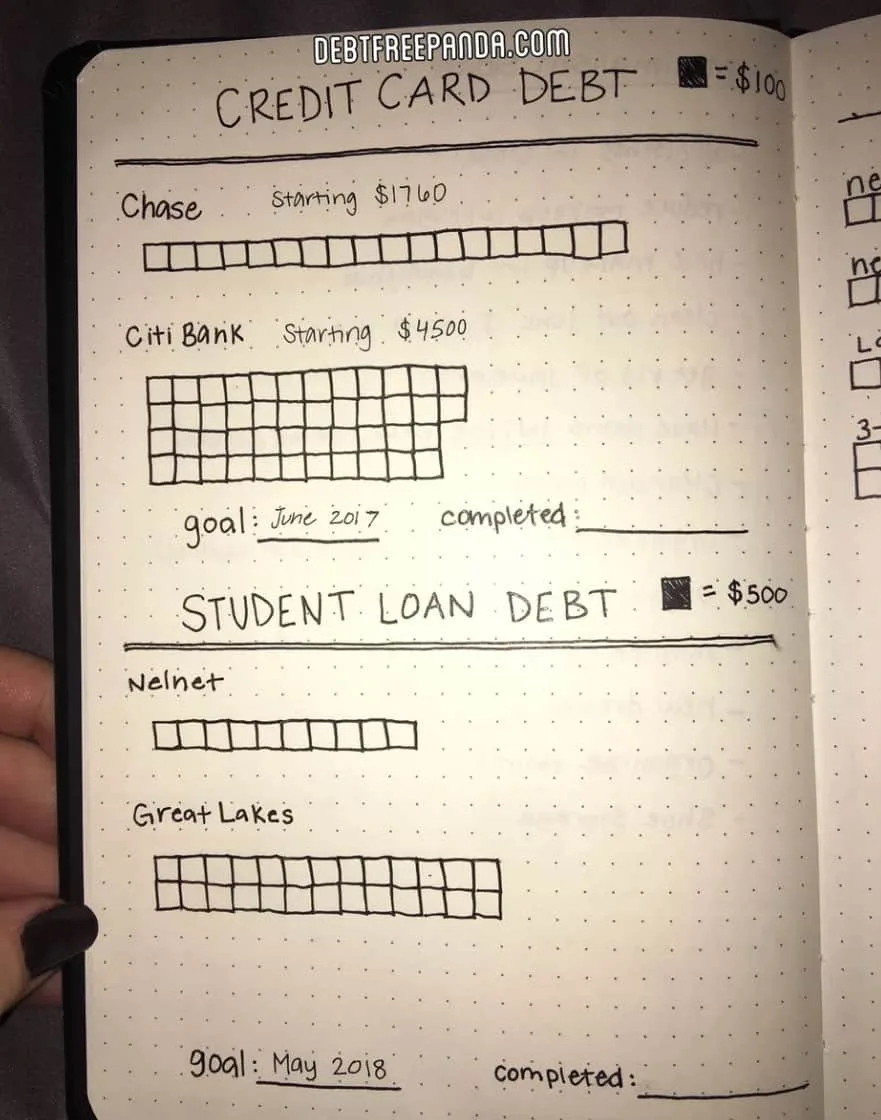 DEBTFREEPANDA.COM
CREDIT CARD DEBT = $100
Chase Starting $1760
Citi Bank Starting $4500
goal: June 2017 completed:
STUDENT LOAN DEBT = $500
Nelnet
Great Lakes
goal: May 2018 completed:
ne
ne
Lo
3-